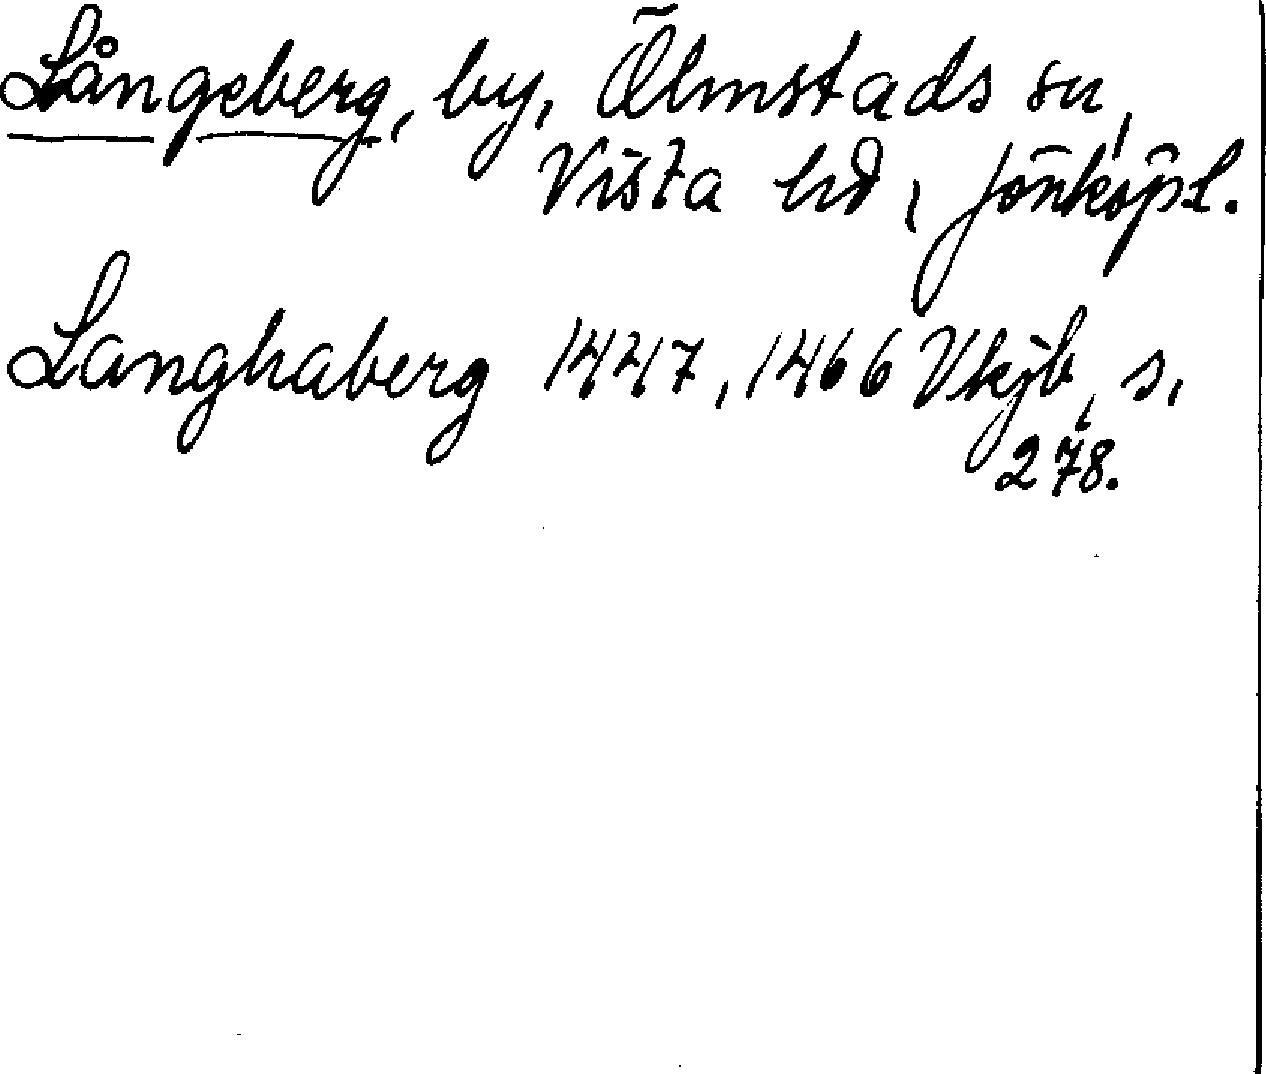 Långeberg, by, Ölmstads sn,
Vista hd, Jönköpsl.
Langhaberg 1447, 1466 Vkjb, s.
278.